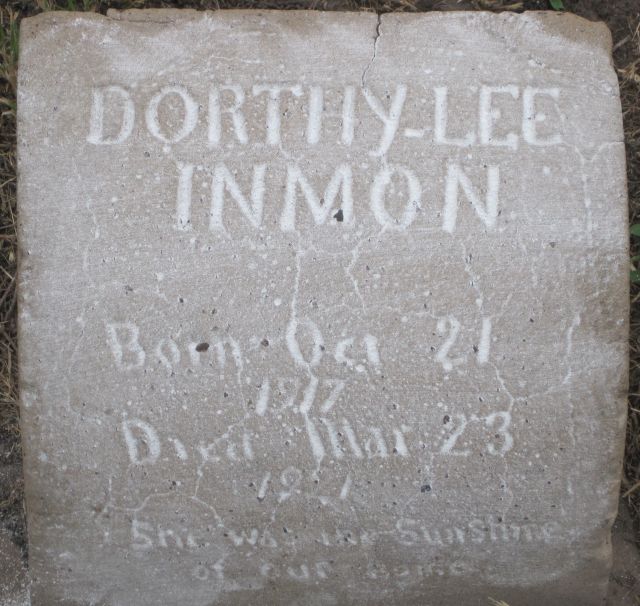 DORTHY-LEE
INMON
Born Oct 21
1917
Died Mar 23
She was the Sunshine
of our home